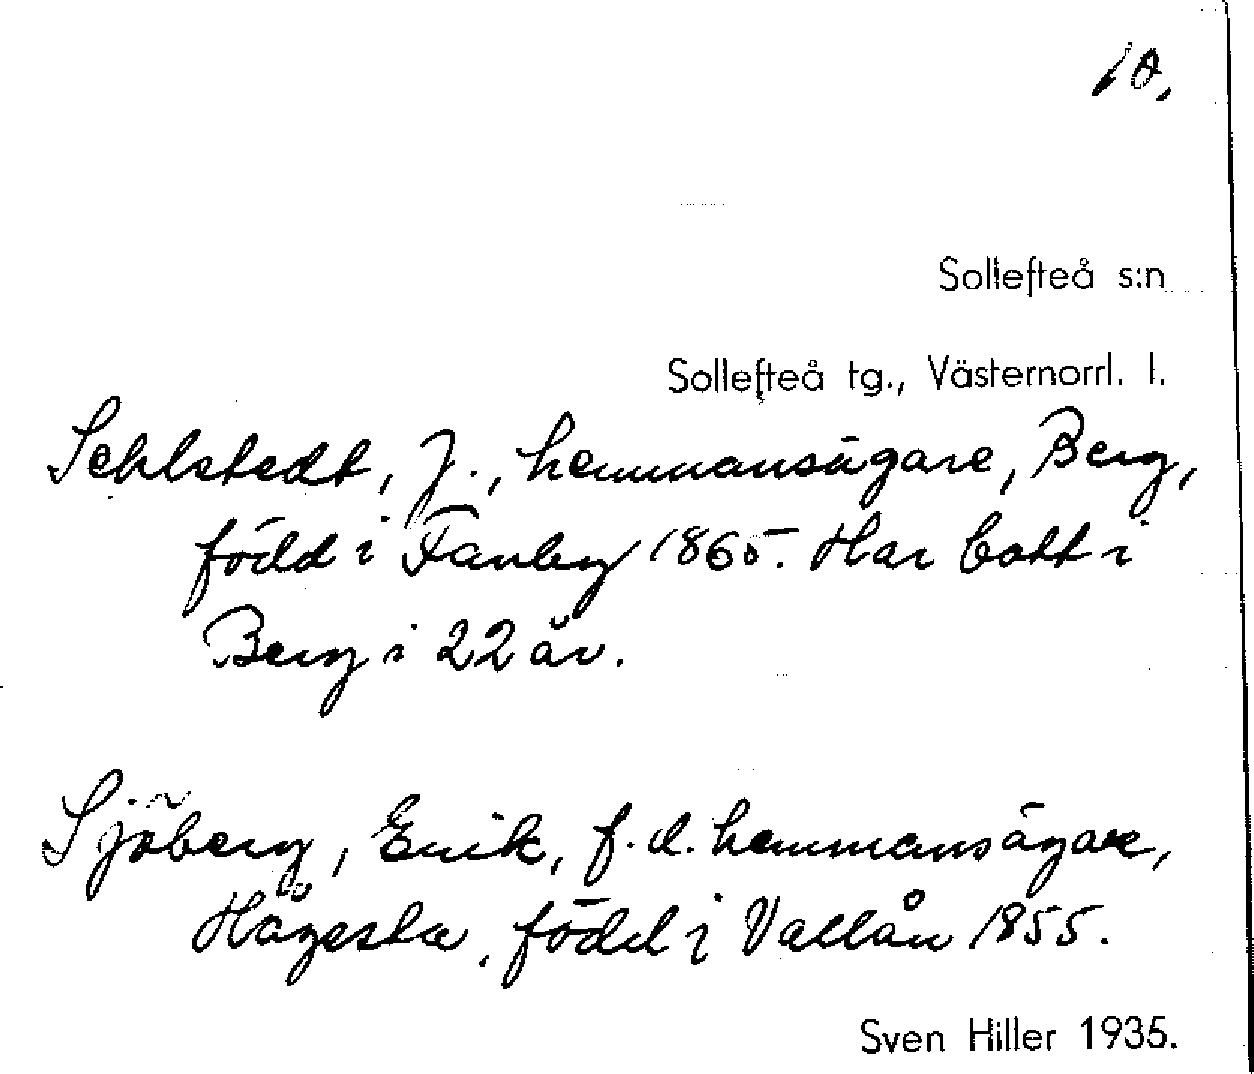 10.
Sollefteå s:n
Sollefteå tg., Västernorrl. l.
Sehlstedt, J., hemmansägare, Berg,
född i Fanby 1865. Har bott i
Berg i 22 år.
Sjöberg, Erik, f.d. hemmansägare,
Hågesta, född i Vallån 1855.
Sven Hiller 1935.